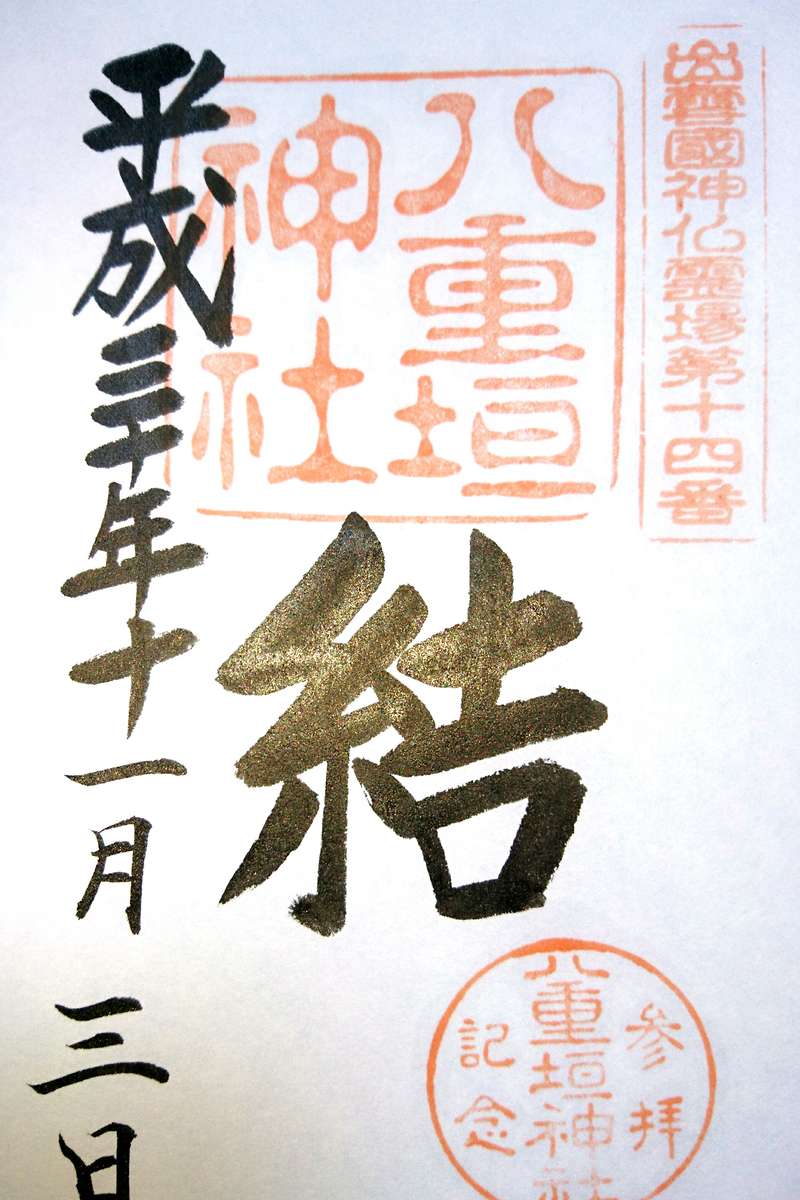 出雲國神仏霊場第十四番
八重垣
神社
結
平成三十年十一月三日
参拝
八重垣神社
記念